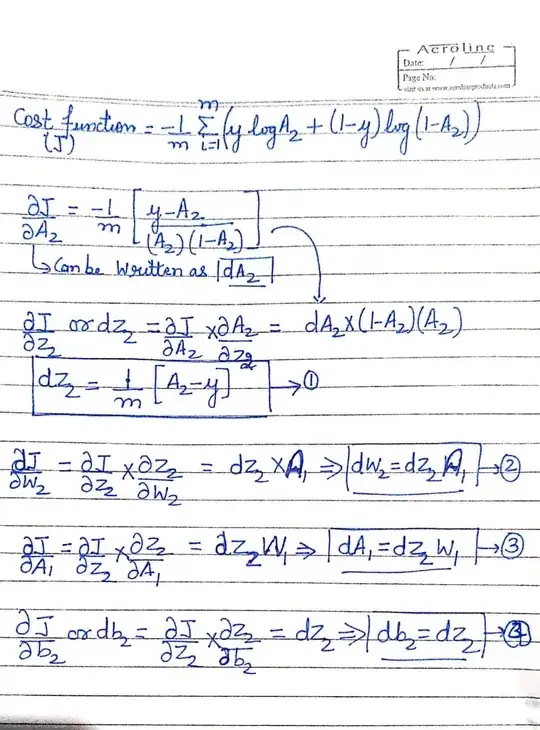 Aeroline
Date: / /
Page No:
visit us at www.aerolineproducts.com
Cost function = -1/m Σ(i=1 to m) (y log A₂ + (1-y) log (1-A₂))
(J)
∂J/∂A₂ = -1/m [ (y-A₂) / (A₂)(1-A₂) ]
↳ Can be written as |dA₂|
∂J/∂Z₂ or dz₂ = ∂J/∂A₂ × ∂A₂/∂Z₂ = dA₂ × (1-A₂)(A₂)
dz₂ = 1/m [A₂-y] → ①
∂J/∂W₂ = ∂J/∂Z₂ × ∂Z₂/∂W₂ = dz₂ × A₁ ⇒ |dW₂ = dz₂ A₁| → ②
∂J/∂A₁ = ∂J/∂Z₂ × ∂Z₂/∂A₁ = dz₂ W₁ ⇒ |dA₁ = dz₂ W₁| → ③
∂J/∂b₂ or db₂ = ∂J/∂Z₂ × ∂Z₂/∂b₂ = dz₂ ⇒ |db₂ = dz₂| → ④